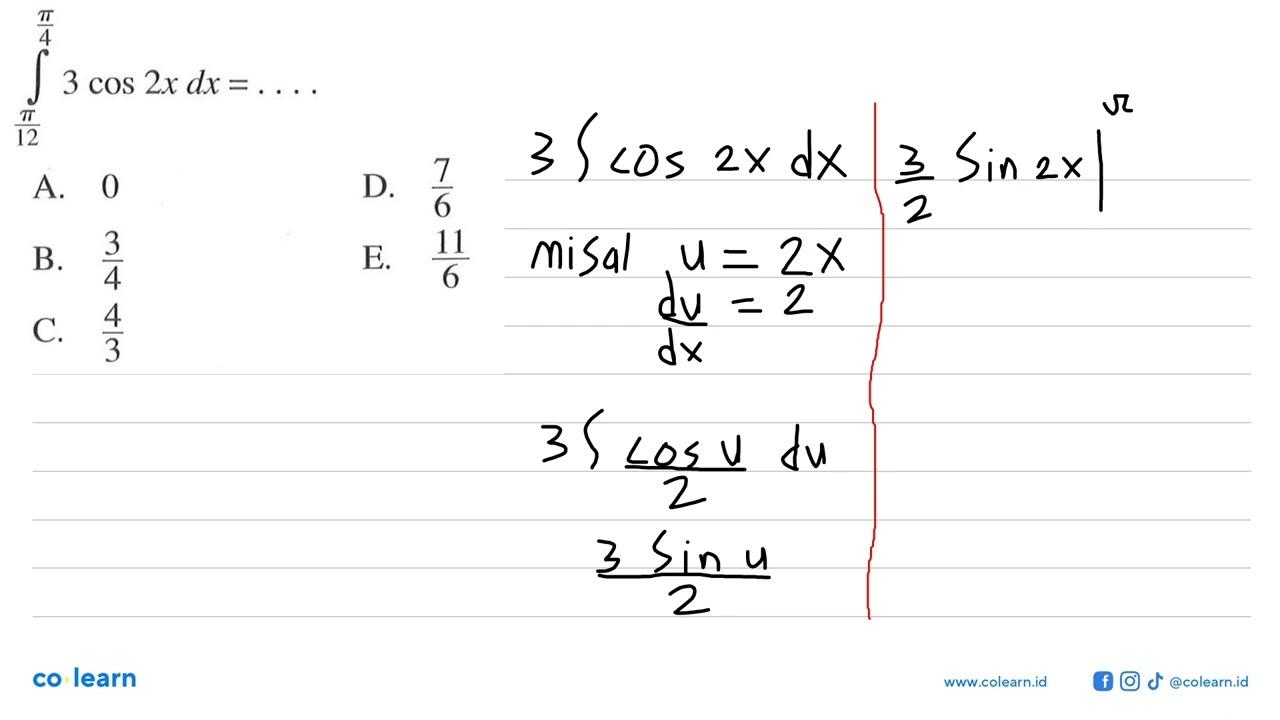 ∫_{π/12}^{π/4} 3 cos 2x dx = . . . .
A. 0
B. 3/4
C. 4/3
D. 7/6
E. 11/6
3 ∫ cos 2x dx
misal u = 2x
du/dx = 2
3 ∫ cos u/2 du
3 sin u/2
3/2 sin 2x |
co learn
www.colearn.id
@colearn.id